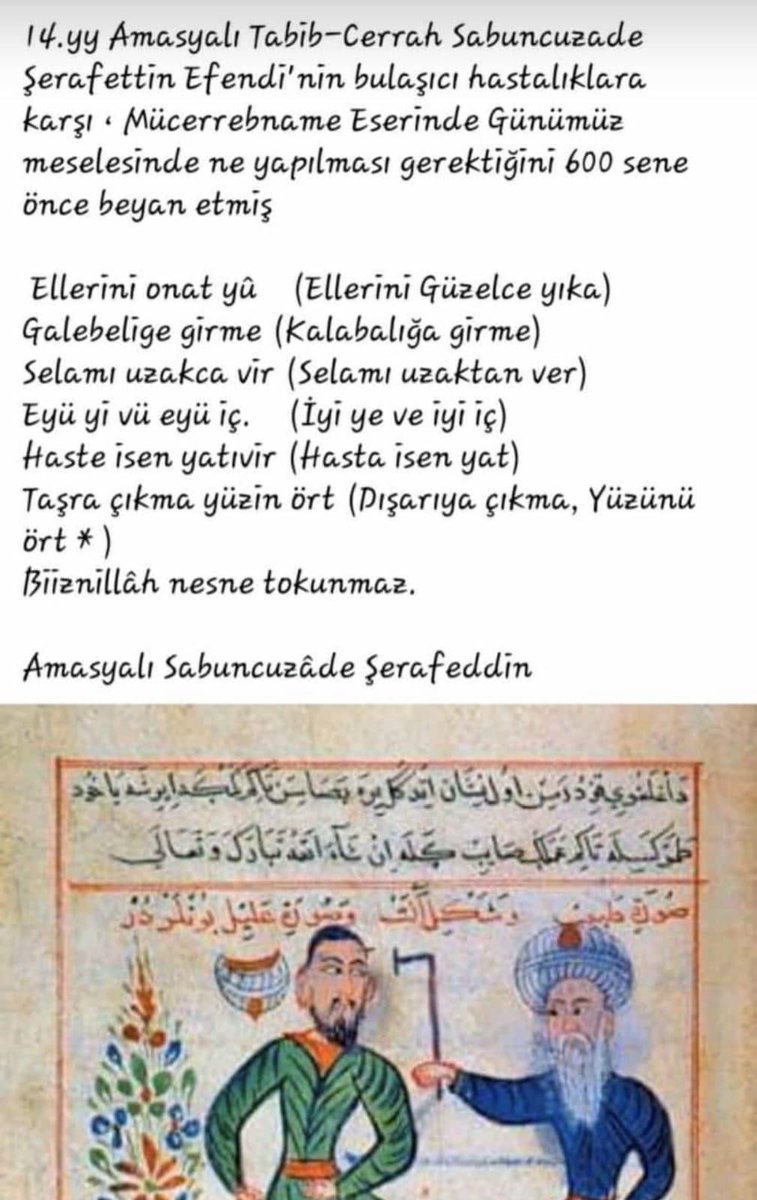 14.yy Amasyalı Tabib-Cerrah Sabuncuzade
Şerafettin Efendi'nin bulaşıcı hastalıklara
karşı ، Mücerrebname Eserinde Günümüz
meselesinde ne yapılması gerektiğini 600 sene
önce beyan etmiş
Ellerini onat yû (Ellerini Güzelce yıka)
Galebelige girme (Kalabalığa girme)
Selamı uzakca vir (Selamı uzaktan ver)
Eyü yi vü eyü iç. (İyi ye ve iyi iç)
Haste isen yatıvir (Hasta isen yat)
Taşra çıkma yüzin ört (Dışarıya çıkma, Yüzünü
ört * )
Biiznillâh nesne tokunmaz.
Amasyalı Sabuncuzâde Şerafeddin
ان شاء الله تبارك وتعالى
صورة طبيب وشكل آلت وصورة عليل بونلردر